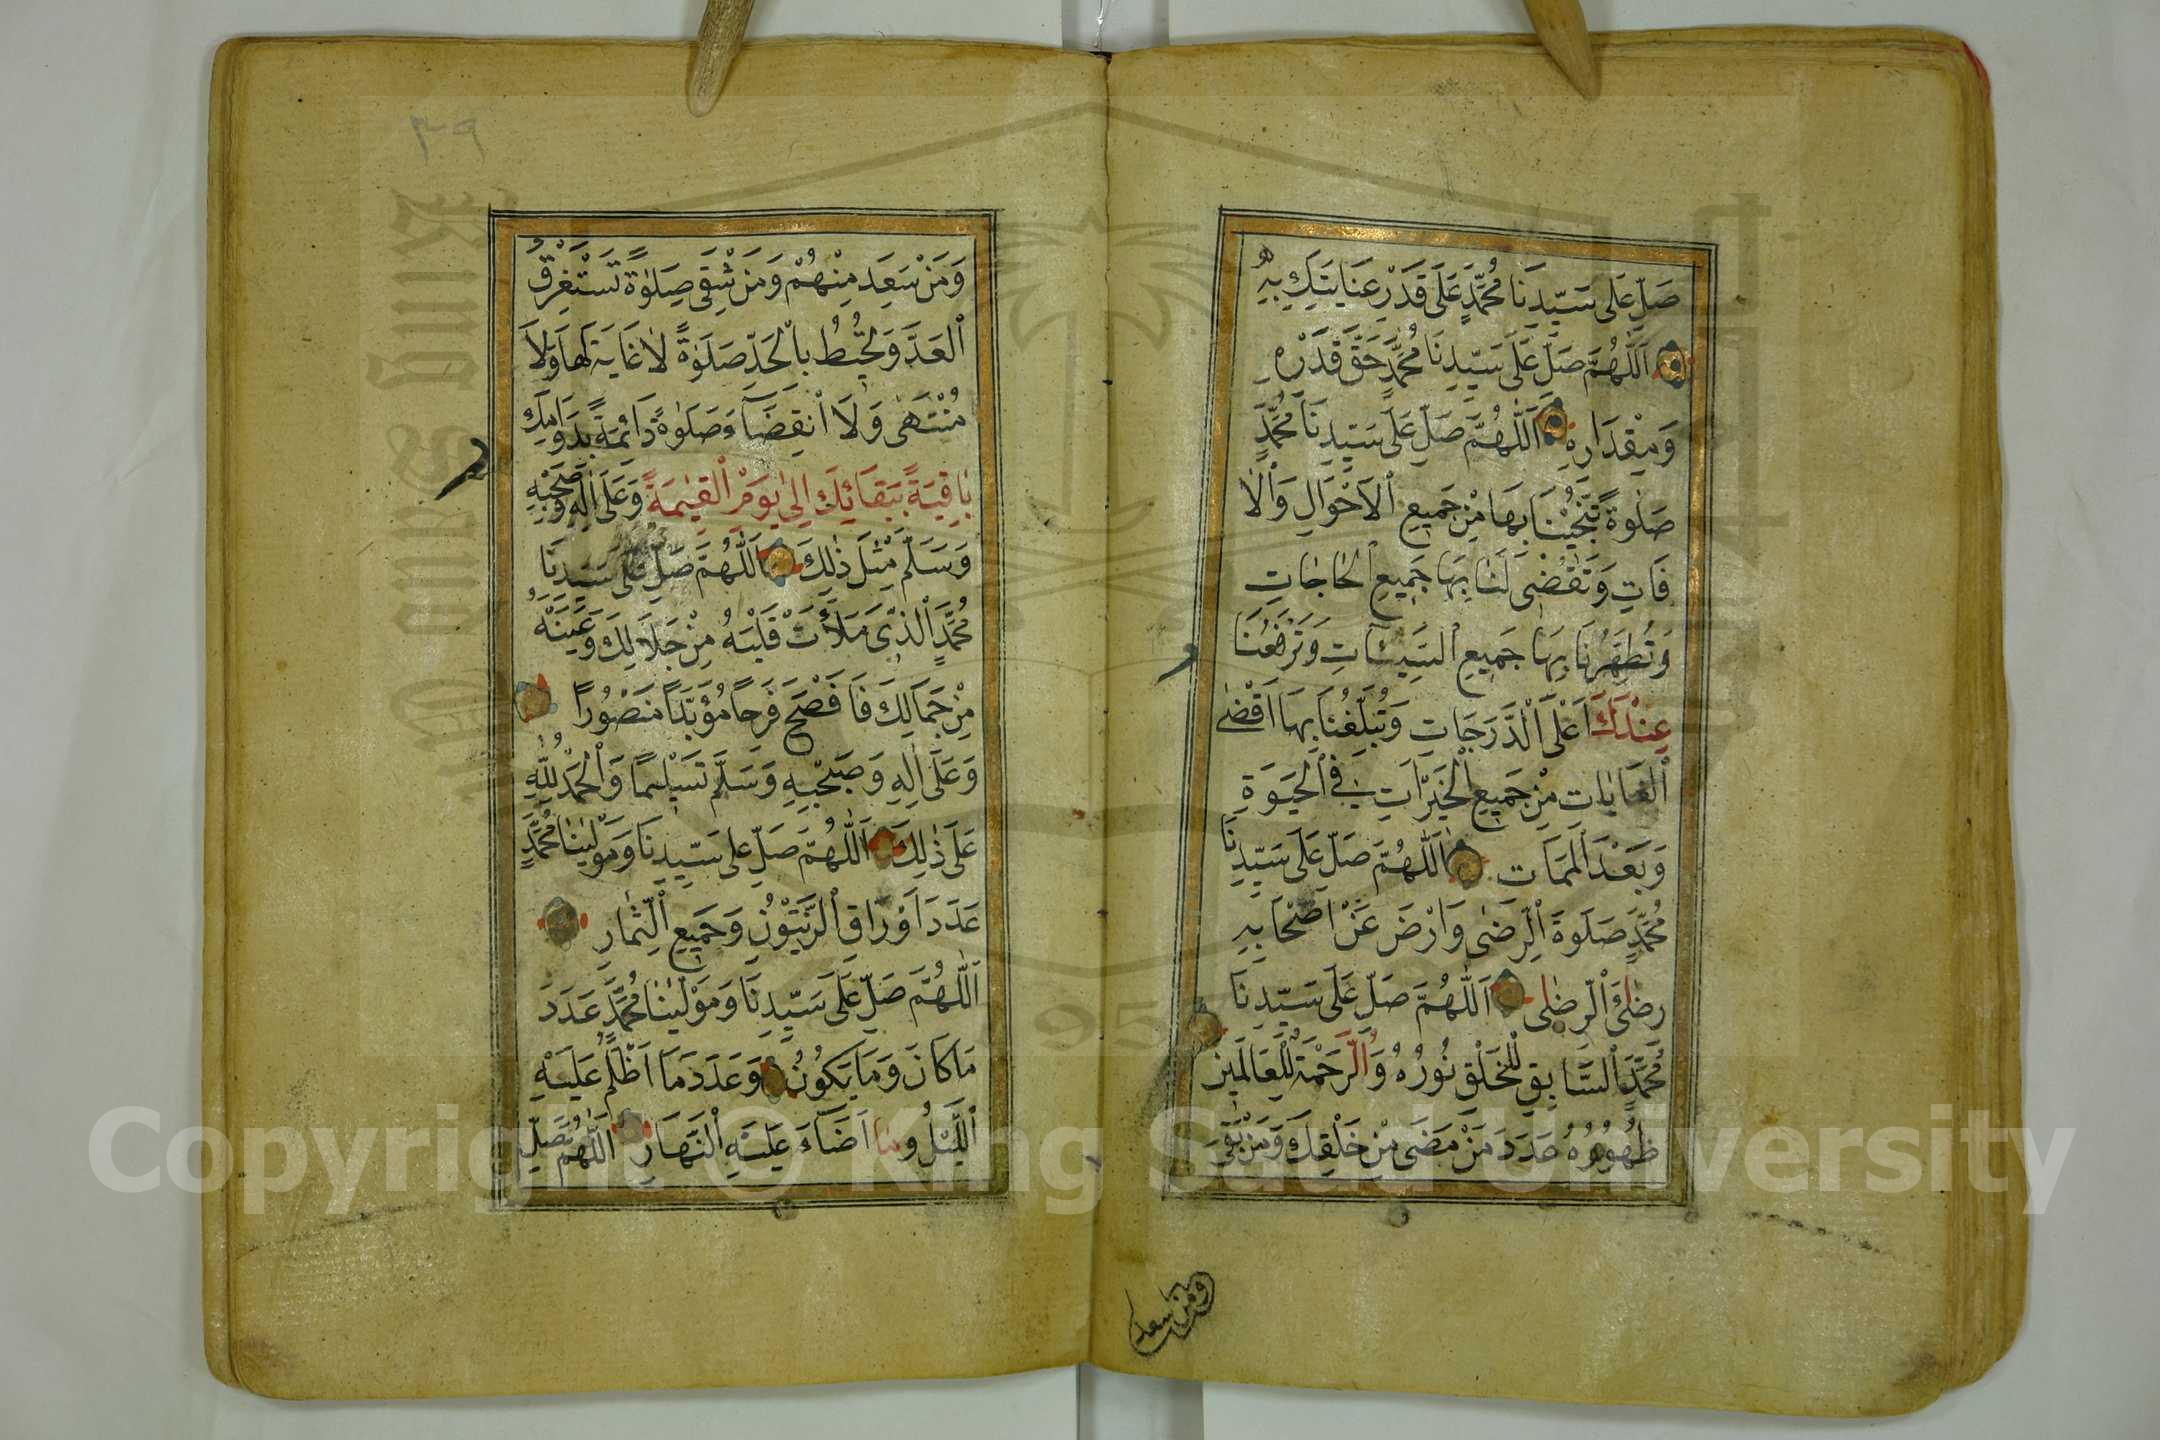 صَلِّ عَلَى سَيِّدِنَا مُحَمَّدٍ عَلَى قَدْرِ عِنَايَتِكَ بِهِ
اَللّٰهُمَّ صَلِّ عَلَى سَيِّدِنَا مُحَمَّدٍ حَقَّ قَدْرِهِ
وَمِقْدَارِهِ اَللّٰهُمَّ صَلِّ عَلَى سَيِّدِنَا مُحَمَّدٍ
صَلٰوةً تُنْجِيْنَا بِهَا مِنْ جَمِيعِ الْاَحْوَالِ وَالْاٰ
فَاتِ وَتَقْضِى لَنَا بِهَا جَمِيعِ الْحَاجَاتِ
وَتُطَهِّرُنَا بِهَا جَمِيعِ السَّيِّئَاتِ وَتَرْفَعُنَا
عِنْدَكَ اَعْلَى الدَّرَجَاتِ وَتُبَلِّغُنَا بِهَا اَقْصٰى
الْغَايَاتِ مِنْ جَمِيعِ الْخَيْرَاتِ فِي الْحَيَوةِ
وَبَعْدَ الْمَمَاتِ اَللّٰهُمَّ صَلِّ عَلَى سَيِّدِنَا
مُحَمَّدٍ صَلَوةَ الرِّضٰى وَارْضَ عَنْ اَصْحَابِهِ
رِضَاءَ الرِّضٰى اَللّٰهُمَّ صَلِّ عَلَى سَيِّدِنَا
مُحَمَّدٍ السَّابِقِ لِلْخَلْقِ نُورُهُ وَالرَّحْمَةُ لِلْعَالَمِينَ
ظُهُورُهُ عَدَدَ مَنْ مَضَى مِنْ خَلْقِكَ وَمَنْ بَقِىَ
ومن سعد
٣٩
وَمَنْ سَعِدَ مِنْهُمْ وَمَنْ شَقِىَ صَلٰوةً تَسْتَغْرِقُ
الْعَدَّ وَتُحِيطُ بِالْحَدِّ صَلَوٰةً لَا غَايَةَ لَهَا وَلَا
مُنْتَهٰى وَلَا انْقِضَاءَ صَلَوٰةً دَائِمَةً بِدَوَامِكَ
بَاقِيَةً بِبَقَائِكَ اِلٰى يَوْمِ الْقِيٰمَةِ وَعَلَى اٰلِهِ وَصَحْبِهِ
وَسَلِّمْ مِثْلَ ذٰلِكَ اَللّٰهُمَّ صَلِّ عَلَى سَيِّدِنَا
مُحَمَّدٍ الَّذِى مَلَأْتَ قَلْبَهُ مِنْ جَلَالِكَ وَعَيْنَهُ
مِنْ جَمَالِكَ فَاَصْبَحَ فَرِحًا مُؤَبَّدًا مَنْصُورًا
وَعَلَى اٰلِهِ وَصَحْبِهِ وَسَلِّمْ تَسْلِيمًا وَالْحَمْدُ لِلّٰهِ
عَلَى ذٰلِكَ اَللّٰهُمَّ صَلِّ عَلَى سَيِّدِنَا وَمَوْلٰينَا مُحَمَّدٍ
عَدَدَ اَوْرَاقِ الزَّيْتُوْنِ وَجَمِيعِ الثِّمَارِ
اَللّٰهُمَّ صَلِّ عَلَى سَيِّدِنَا وَمَوْلٰينَا مُحَمَّدٍ عَدَدَ
مَا كَانَ وَمَا يَكُونُ وَعَدَدَ مَا اَظْلَمَ عَلَيْهِ
اللَّيْلُ وَمَا اَضَاءَ عَلَيْهِ النَّهَارُ اَللّٰهُمَّ صَلِّ
Copyright © King Saud University
King Saud University
1957